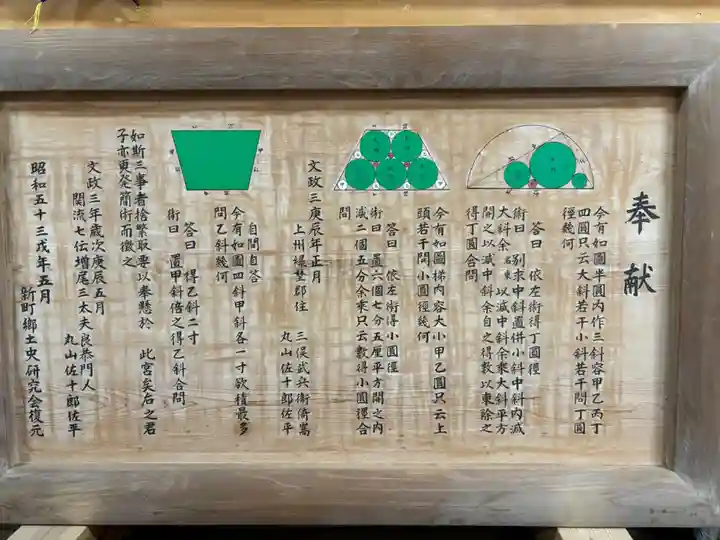 奉献
今有如図半圓内作三斜容甲乙丙丁
四圓只云大斜若干小斜若干問丁圓
径幾何
答曰 依左術得丁圓径
術曰 別求中斜置併小斜中斜内減
大斜余 以減中斜余乗大斜平方
間之以減中斜余自之得数以東除之
得丁圓合問
今有如図梯内容大小甲乙圓只云上
頭若干問小圓径幾何
答曰 依左術得小圓径
術曰 置六個七分五厘平方開之内
減二個五分余乗只云数得小圓径合
問
文政三庚辰年正月
上州堤埜郡住
三俣武兵衛倚嵩
丸山佐十郎佐平
自問自答
今有如図四斜甲斜各一寸欲積最多
問乙斜幾何
答曰 得乙斜二寸
術曰 置甲斜倍之得乙斜合問
如斯三事者捨繁取要以奉懸於 此宮矣后之君
子亦更発簡術而徴之
文政三年歳次庚辰五月
関流七伝増尾三太夫良恭門人
丸山佐十郎佐平
昭和五十三戊年五月
新町郷土史研究会復元